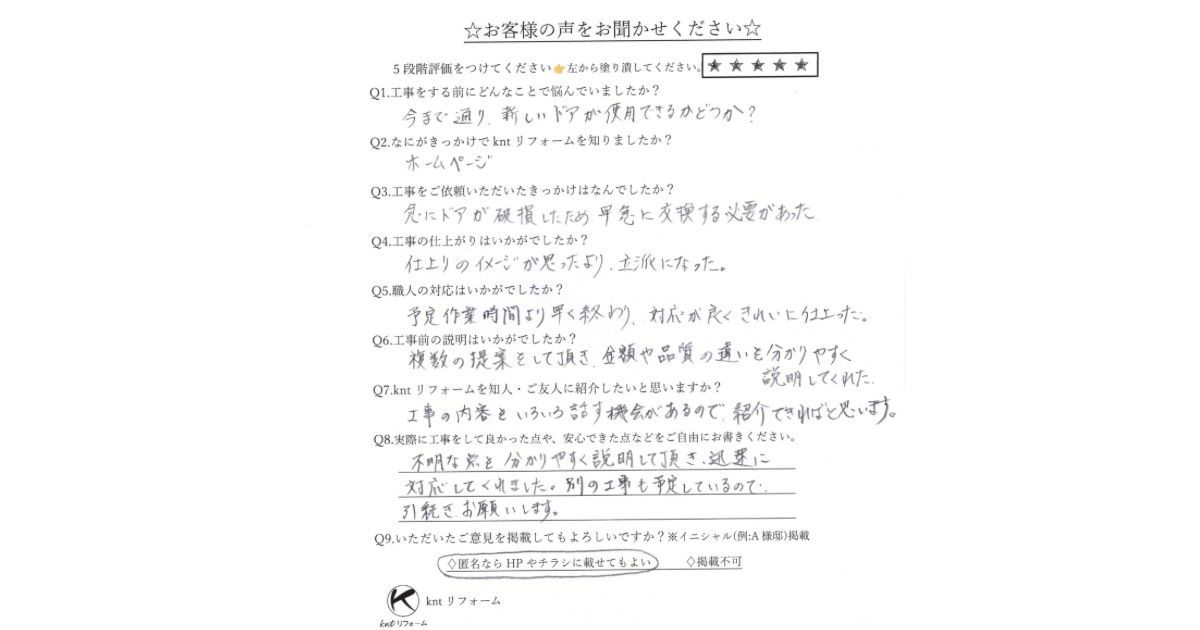 ☆お客様の声をお聞かせください☆
5段階評価をつけてください👉左から塗り潰してください。★★★★★
Q1.工事をする前にどんなことで悩んでいましたか？
今まで通り、新しいドアが使用できるかどうか？
Q2.なにがきっかけでkntリフォームを知りましたか？
ホームページ
Q3.工事をご依頼いただいたきっかけはなんでしたか？
急にドアが破損したため早急に交換する必要があった
Q4.工事の仕上がりはいかがでしたか？
仕上りのイメージが思ったより、立派になった。
Q5.職人の対応はいかがでしたか？
予定作業時間より早く終わり、対応が良くきれいに仕上った。
Q6.工事前の説明はいかがでしたか？
複数の提案をして頂き、金額や品質の違いを分かりやすく
説明してくれた.
Q7.kntリフォームを知人・ご友人に紹介したいと思いますか？
工事の内容をいろいろ話す機会があるので、紹介できればと思います。
Q8.実際に工事をして良かった点や、安心できた点などをご自由にお書きください。
不明な点を分かりやすく説明して頂き、迅速に
対応してくれました。別の工事も予定しているので、
引続き、お願いします。
Q9.いただいたご意見を掲載してもよろしいですか？※イニシャル(例:A様邸)掲載
◇匿名ならHPやチラシに載せてもよい ◇掲載不可
K kntリフォーム
kntリフォーム